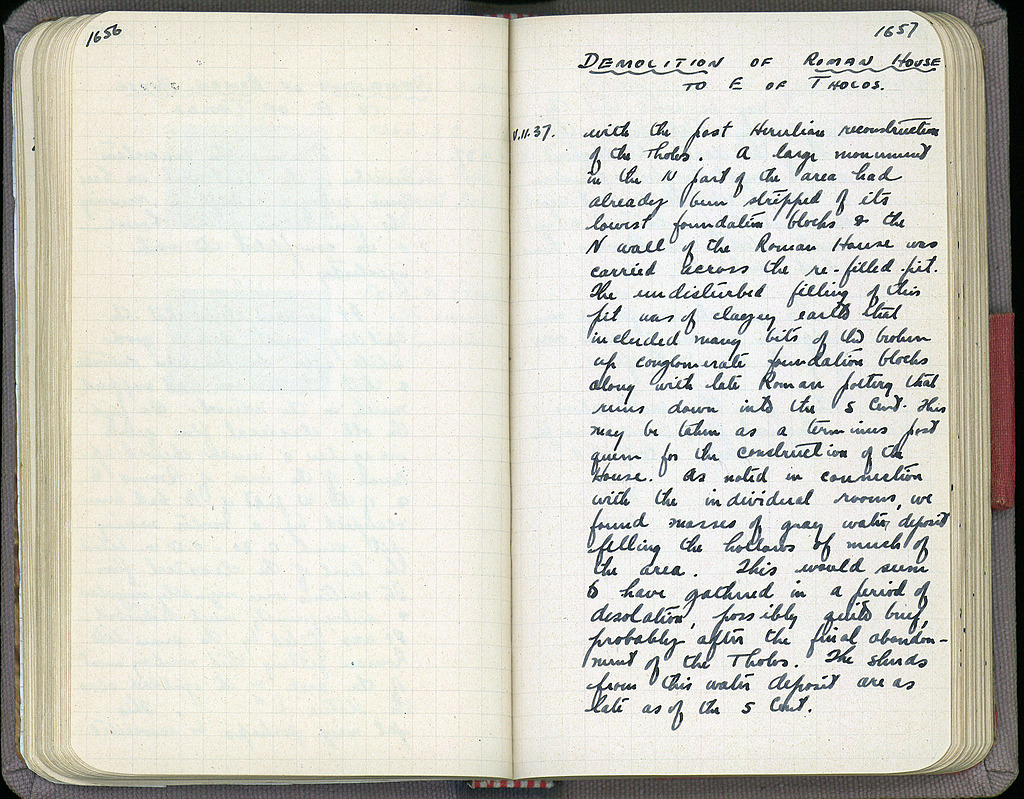 1656
1657
DEMOLITION OF ROMAN HOUSE
TO E OF THOLOS.
V.11.37.
with the post Herulian reconstruction
of the Tholos. A large monument
in the N part of the area had
already been stripped of its
lowest foundation blocks & the
N wall of the Roman House was
carried across the re-filled pit.
The undisturbed filling of this
pit was of clayey earth that
included many bits of the broken
up conglomerate foundation blocks
along with late Roman pottery that
runs down into the 5 Cent. This
may be taken as a terminus post
quem for the construction of the
House. As noted in connection
with the individual rooms, we
found masses of gray water deposit
filling the hollows of much of
the area. This would seem
to have gathered in a period of
desolation, possibly quite brief,
probably after the final abandon-
ment of the Tholos. The sherds
from this water deposit are as
late as of the 5 Cent.